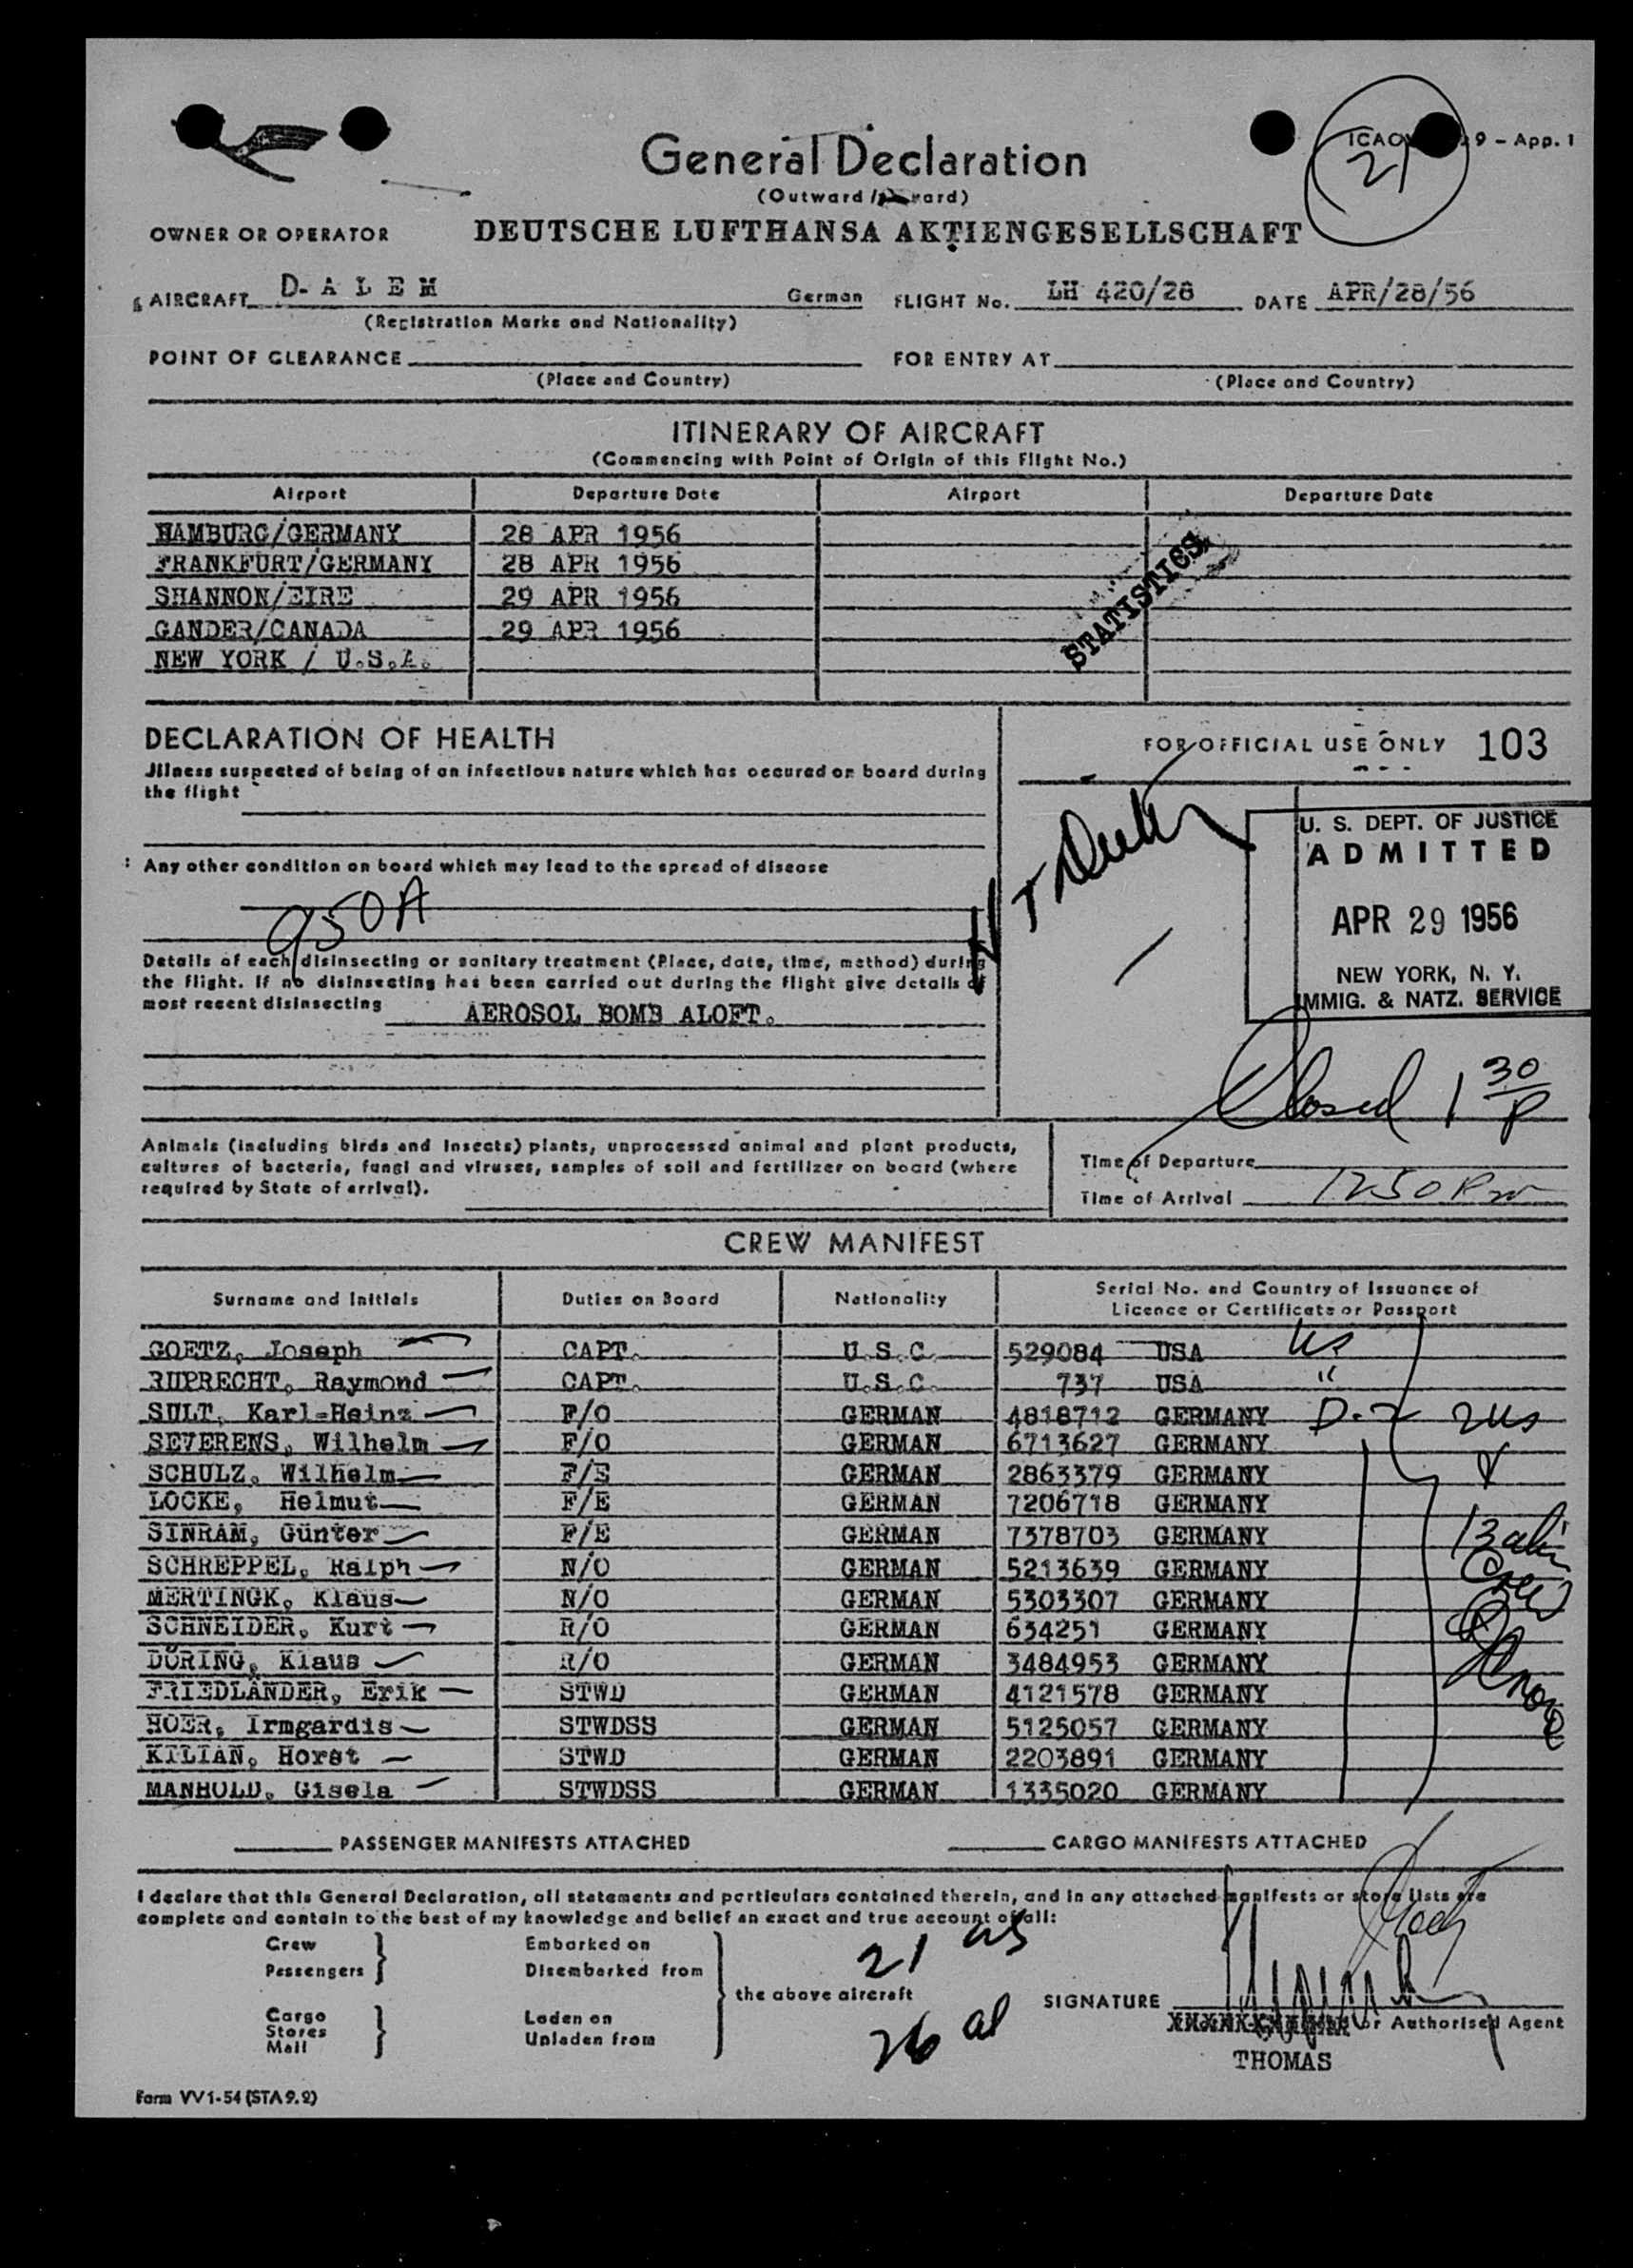 General Declaration
(Outward / ward)
ICAO 9 – App. 1
21
OWNER OR OPERATOR DEUTSCHE LUFTHANSA AKTIENGESELLSCHAFT
AIRCRAFT D- A L E M German FLIGHT No. LH 420/28 DATE APR/28/56
(Registration Marks and Nationality)
POINT OF CLEARANCE FOR ENTRY AT
(Place and Country) (Place and Country)
ITINERARY OF AIRCRAFT
(Commencing with Point of Origin of this Flight No.)
Airport Departure Date Airport Departure Date
HAMBURG/GERMANY 28 APR 1956
FRANKFURT/GERMANY 28 APR 1956
SHANNON/EIRE 29 APR 1956
GANDER/CANADA 29 APR 1956
NEW YORK / U.S.A.
STATISTICS
DECLARATION OF HEALTH
Jllness suspected of being of an infectious nature which has occured on board during
the flight
Any other condition on board which may lead to the spread of disease
950A
Details of each disinsecting or sanitary treatment (Place, date, time, method) during
the flight. If no disinsecting has been carried out during the flight give details of
most recent disinsecting AEROSOL BOMB ALOFT.
FOR OFFICIAL USE ONLY 103
U. S. DEPT. OF JUSTICE
ADMITTED
APR 29 1956
NEW YORK, N. Y.
IMMIG. & NATZ. SERVICE
Closed 1 30 P
Animals (including birds and insects) plants, unprocessed animal and plant products,
cultures of bacteria, fungi and viruses, samples of soil and fertilizer on board (where
required by State of arrival).
Time of Departure
Time of Arrival 1250 Pm
CREW MANIFEST
Surname and Initials Duties on Board Nationality Serial No. and Country of Issuance of
Licence or Certificate or Passport
GOETZ, Joseph CAPT. U.S.C. 529084 USA us
RUPRECHT, Raymond CAPT. U.S.C. 737 USA "
SULT, Karl-Heinz F/O GERMAN 4818712 GERMANY D-2 2us
SEVERENS, Wilhelm F/O GERMAN 6713627 GERMANY
SCHULZ, Wilhelm F/E GERMAN 2863379 GERMANY
LOCKE, Helmut F/E GERMAN 7206718 GERMANY
SINRAM, Günter F/E GERMAN 7378703 GERMANY 13 alien
SCHREPPEL, Ralph N/O GERMAN 5213639 GERMANY Crew
MERTINGK, Klaus N/O GERMAN 5303307 GERMANY
SCHNEIDER, Kurt R/O GERMAN 634251 GERMANY
DÖRING, Klaus R/O GERMAN 3484953 GERMANY
FRIEDLÄNDER, Erik STWD GERMAN 4121578 GERMANY
HOER, Irmgardis STWDSS GERMAN 5125057 GERMANY
KILIAN, Horst STWD GERMAN 2203891 GERMANY
MANHOLD, Gisela STWDSS GERMAN 1335020 GERMANY
PASSENGER MANIFESTS ATTACHED CARGO MANIFESTS ATTACHED
I declare that this General Declaration, all statements and particulars contained therein, and in any attached manifests or store lists are
complete and contain to the best of my knowledge and belief an exact and true account of all:
Crew Embarked on
Passengers Disembarked from
the above aircraft
Cargo Laden on
Stores Unladen from
Mail
21 us
26 al
SIGNATURE
or Authorised Agent
THOMAS
Form VV1-54 (STA 9.2)